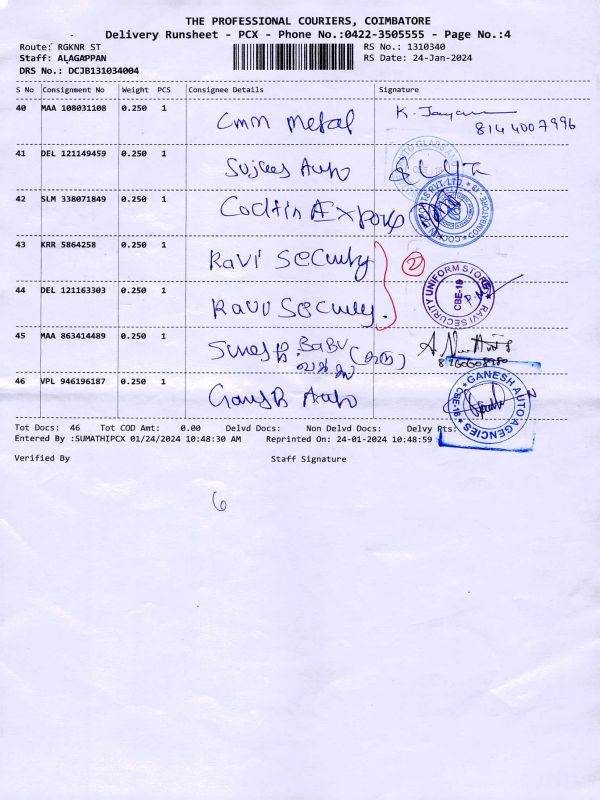 THE PROFESSIONAL COURIERS, COIMBATORE
Delivery Runsheet - PCX - Phone No.:0422-3505555 - Page No.:4
Route: RGKNR ST
RS No.: 1310340
Staff: ALAGAPPAN
RS Date: 24-Jan-2024
DRS No.: DCJB131034004
S No Consignment No Weight PCS Consignee Details Signature
40 MAA 108031108 0.250 1 Cmm Metal K. Jayam
8144007996
41 DEL 121149459 0.250 1 Sujees Auto
42 SLM 338071849 0.250 1 Cochin Exports
COIMBATORE - 18
43 KRR 5864258 0.250 1 Ravi Security 2
RAVI SECURITY UNIFORM STORES
CBE-18
44 DEL 121163303 0.250 1 Ravi Security.
45 MAA 863414489 0.250 1 Babu
8760608980
46 VPL 946196187 0.250 1 Ganesh Auto
GANESH AUTO AGENCIES
CBE-18
Tot Docs: 46 Tot COD Amt: 0.00 Delvd Docs: Non Delvd Docs: Delvy Pts:
Entered By :SUMATHIPCX 01/24/2024 10:48:30 AM Reprinted On: 24-01-2024 10:48:59
Verified By Staff Signature
6